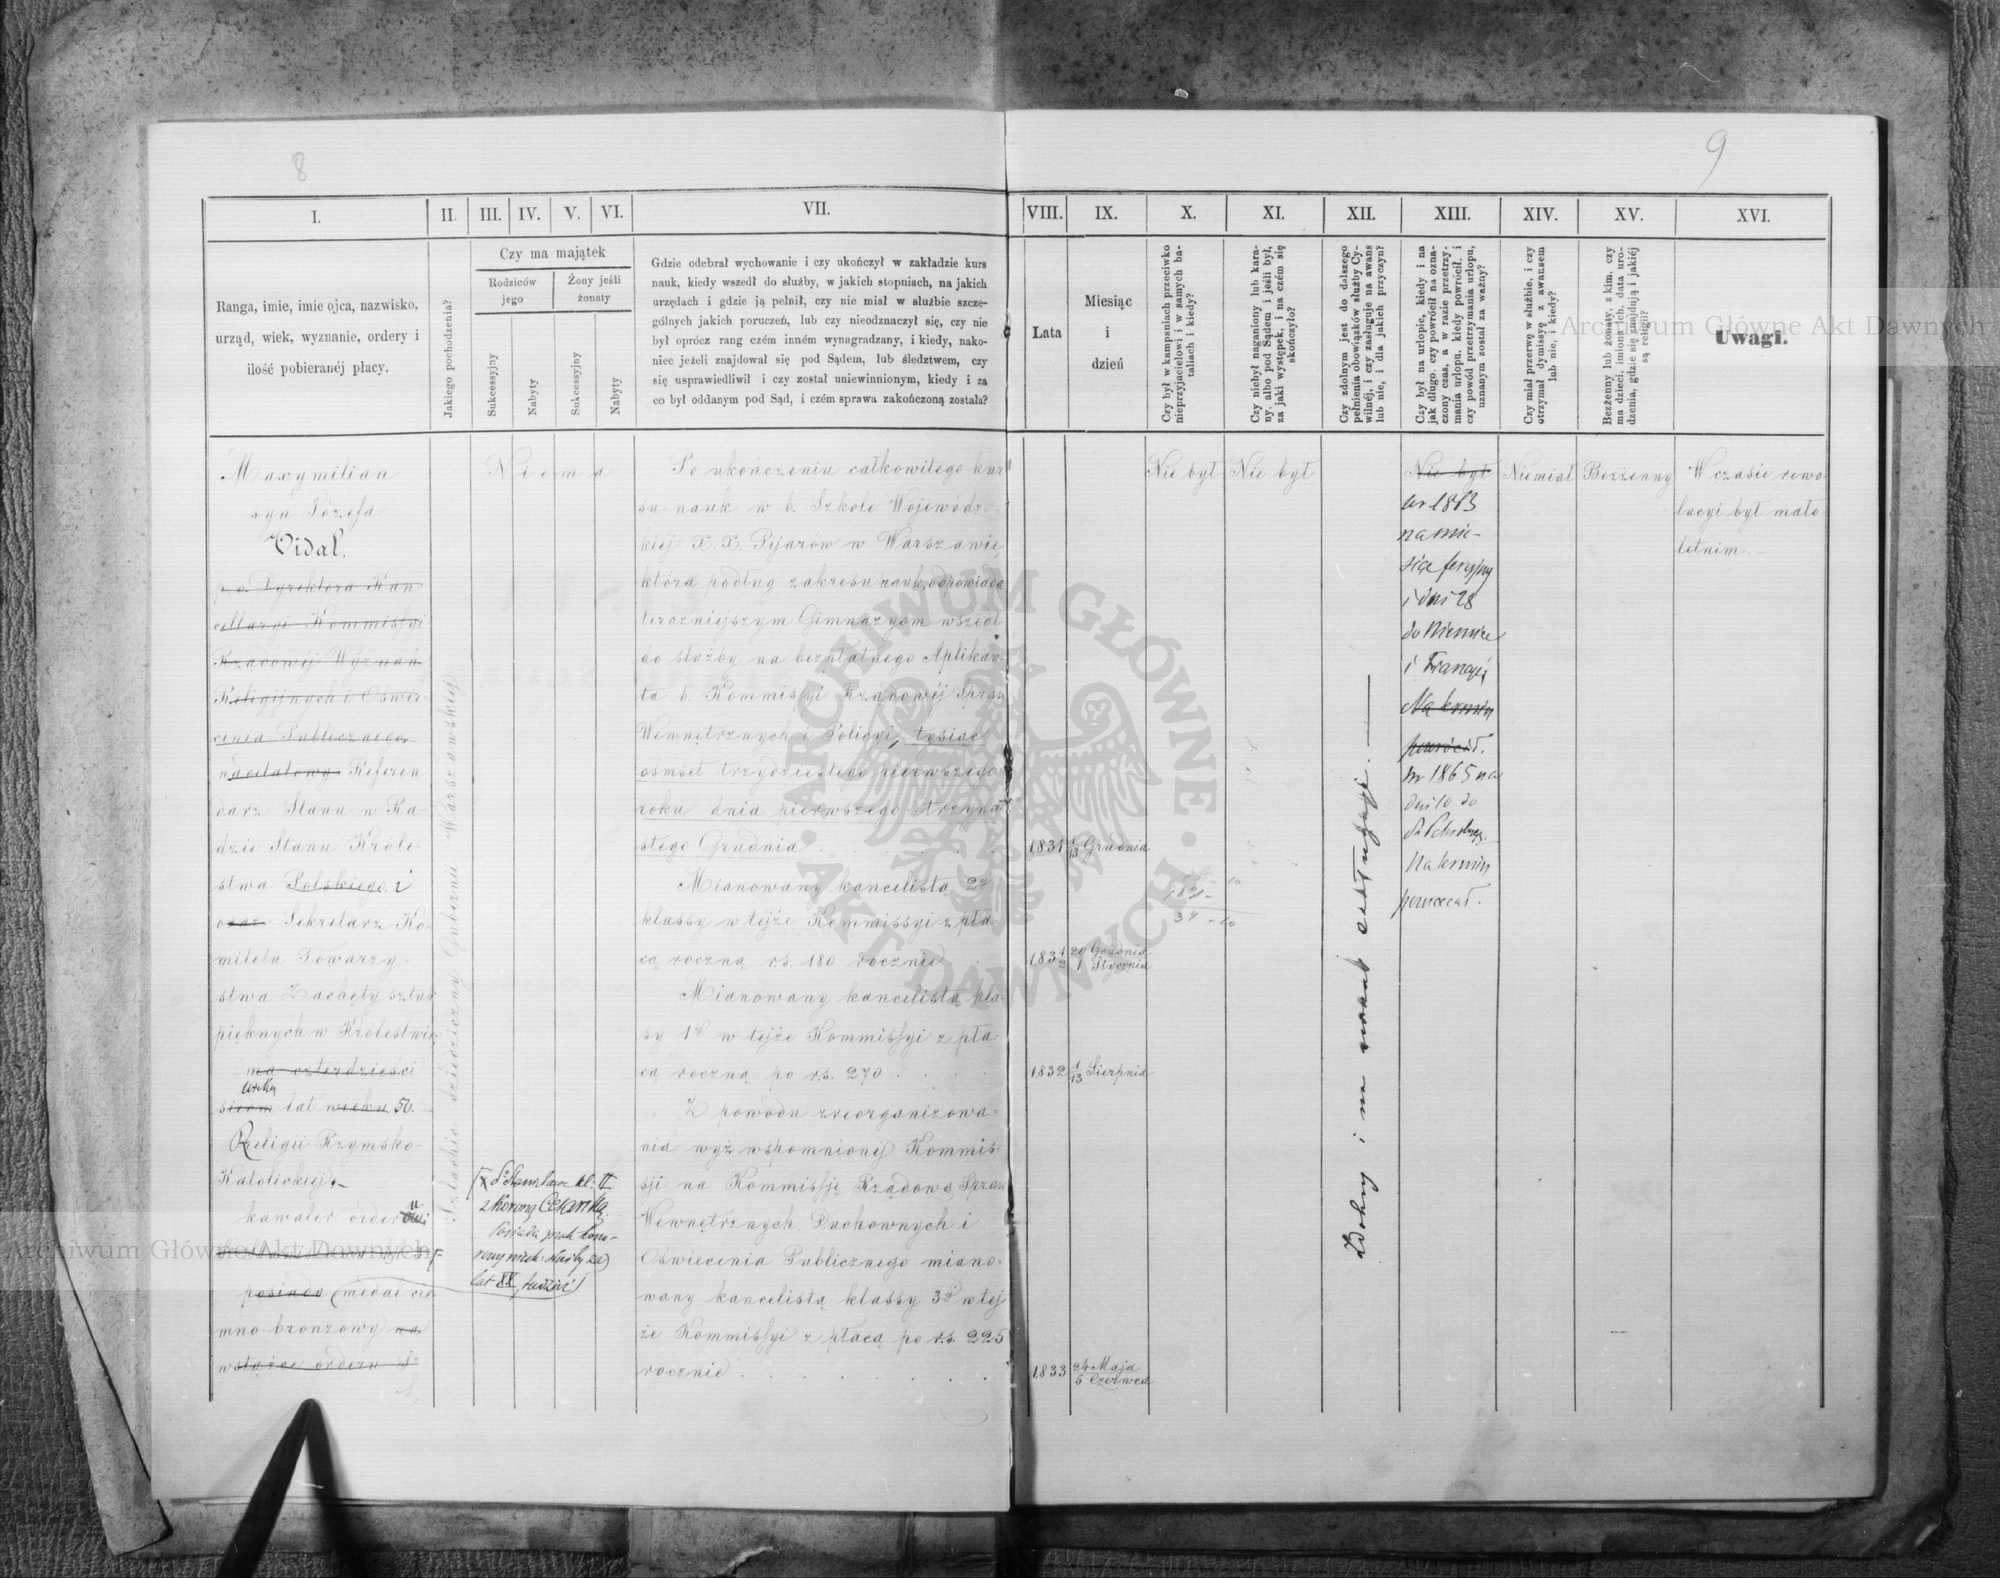 8
9
I.
II.
III.
IV.
V.
VI.
VII.
VIII.
IX.
X.
XI.
XII.
XIII.
XIV.
XV.
XVI.
Ranga, imie, imie ojca, nazwisko,
urząd, wiek, wyznanie, ordery i
ilość pobieranéj płacy.
Jakiego pochodzenia?
Czy ma majątek
Rodziców
jego
Żony jeśli
żonaty
Sukcessyjny
Nabyty
Sukcessyjny
Nabyty
Gdzie odebrał wychowanie i czy ukończył w zakładzie kurs
nauk, kiedy wszedł do służby, w jakich stopniach, na jakich
urzędach i gdzie ją pełnił, czy nie miał w służbie szcze-
gólnych jakich poruczeń, lub czy nieodznaczył się, czy nie
był oprócz rang czém inném wynagradzany, i kiedy, nako-
niec jeżeli znajdował się pod Sądem, lub śledztwem, czy
się usprawiedliwił i czy został uniewinnionym, kiedy i za
co był oddanym pod Sąd, i czém sprawa zakończoną została?
Lata
Miesiąc
i
dzień
Czy był w kampaniach przeciwko
nieprzyjacielowi i w samych ba-
taliach i kiedy?
Czy niebył naganiony lub kara-
ny, albo pod Sądem i jeśli był,
za jaki występek, i na czém się
skończyło?
Czy zdolnym jest do dalszego
pełnienia obowiązków służby Cy-
wilnéj, i czy zasługuje na awans
lub nie, i dla jakich przyczyn?
Czy był na urlopie, kiedy i na
jak długo, czy powrócił na ozna-
czony czas, a w razie przetrzy-
mania urlopu, kiedy powrócił, i
czy powód przetrzymania urlopu,
uznanym został za ważny?
Czy miał przerwę w służbie, i czy
otrzymał dymissyę z awansem
lub nie, i kiedy?
Bezżenny lub żonaty, z kim, czy
ma dzieci, imiona ich, data uro-
dzenia, gdzie się znajdują i jakiéj
są religii?
Uwagi.
Maxymilian
syn Józefa
Vidal,
p. o. Dyrektora Kan
cellaryi Kommissyi
Rządowéj Wyznań
Religijnych i Oświe
cenia Publicznego,
nadetatowy Referen
darz Stanu w Ra
dzie Stanu Króle
stwa Polskiego, i
oraz Sekretarz Ko-
mitetu Towarzy-
stwa Zachęty sztuk
pięknych w Królestwie
ma czterdzieści
wieku
siedm lat wieku 50.
Religii Rzymsko-
Katolickiéj.
kawaler orderu
posiada medal cie
mno bronzowy na
wstążce orderu Sgo
Szlachic dziedziczny Gubernii Warszawskiéj
Niema
Sgo Stanisława kl: II
z Koroną Cesarską.
Posiada znak hono-
rowy nieskt: służby za
lat XX, tudzież
Po ukończeniu całkowitego kur
su nauk w b. Szkole Wojewódz
kiéj X. X. Pijarów w Warszawie
która podług zakresu nauk, odpowiada
terazniejszym Gimnazyom wszedł
do służby na bezpłatnego Aplikan-
ta b. Kommissyi Rządowéj Spraw
Wewnętrznych i Policyi, tysiąc
ośmset trzydziestego pierwszego
roku dnia pierwszego trzyna
stego Grudnia
1831 1/13 Grudnia
Mianowany kancelistą 2éj
klassy w tejże Kommissyi z pła-
cą roczną r.s. 180 rocznie
1831/2 20 Grudnia / 1 Stycznia
Mianowany kancelistą kla-
sy 1éj w tejże Kommissyi z pła-
cą roczną po r.s. 270
1832 1/13 Sierpnia
Z powodu zreorganizowa-
nia wyż wspomnionéj Kommis-
syi na Kommissję Rządową Spraw
Wewnętrznych Duchownych i
Oświecenia Publicznego miano-
wany kancelistą klassy 3éj w tej
że Kommissyi z płacą po r.s. 225
rocznie
1833 24 Maja / 5 Czerwca
Nie był
1831
34 - 10
Nie był
Zdolny i na awans zasługuje.
Nie był
w 1863
na mie-
siąc feryjny
i dni 28
do Niemiec
i Francyi,
Na termin
powrócił.
w 1865 na
dni 10 do
St Petersbga.
Na termin
powrócił.
Niemiał
Bezżenny
W czasie rewo-
lucyi był mało-
letnim.
Archiwum Główne Akt Dawnych
Archiwum Główne Akt Dawnych
ARCHIWUM GŁÓWNE AKT DAWNYCH